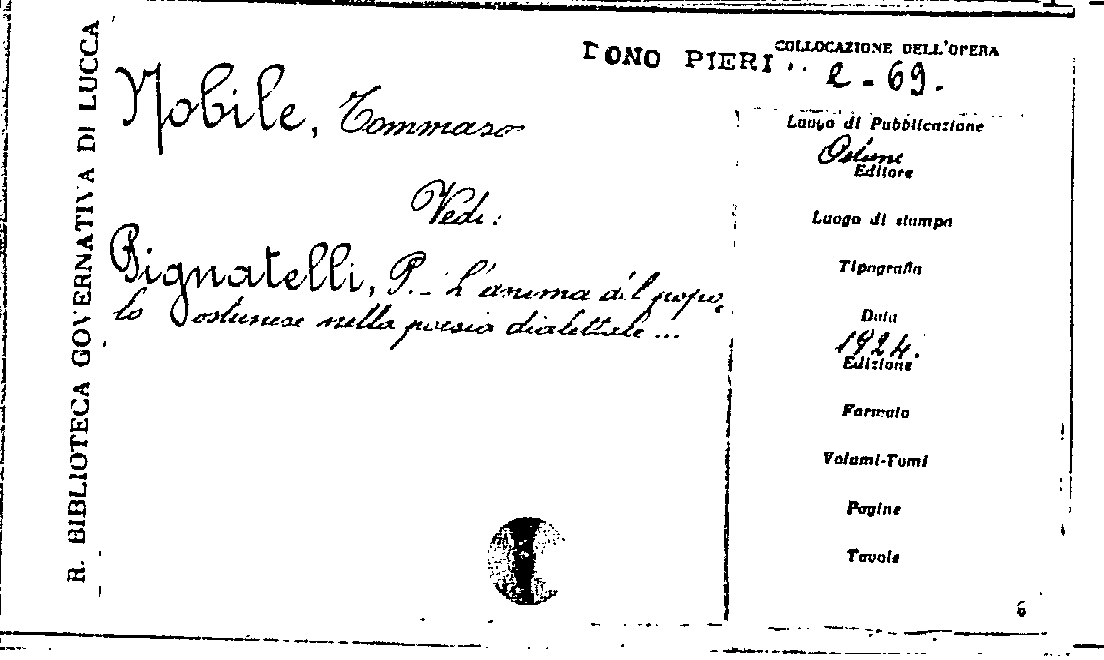 R. BIBLIOTECA GOVERNATIVA DI LUCCA
DONO PIERI
COLLOCAZIONE DELL'OPERA
e-69.
Nobile, Tommaso
Vedi:
Pignatelli, P. - L'anima del popo-
lo ostunese nella poesia dialettale...
Luogo di Pubblicazione
Ostuni
Editore
Luogo di stampa
Tipografia
Data
1924.
Edizione
Formato
Volumi-Tomi
Pagine
Tavole
6